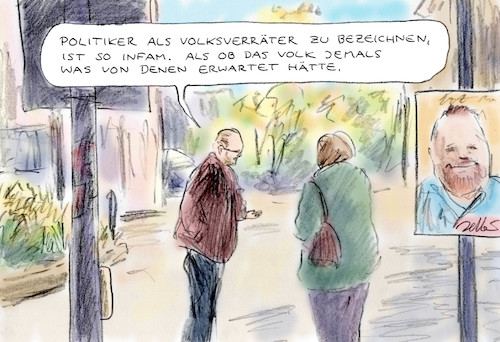 POLITIKER ALS VOLKSVERRÄTER ZU BEZEICHNEN,
IST SO INFAM. ALS OB DAS VOLK JEMALS
WAS VON DENEN ERWARTET HÄTTE.